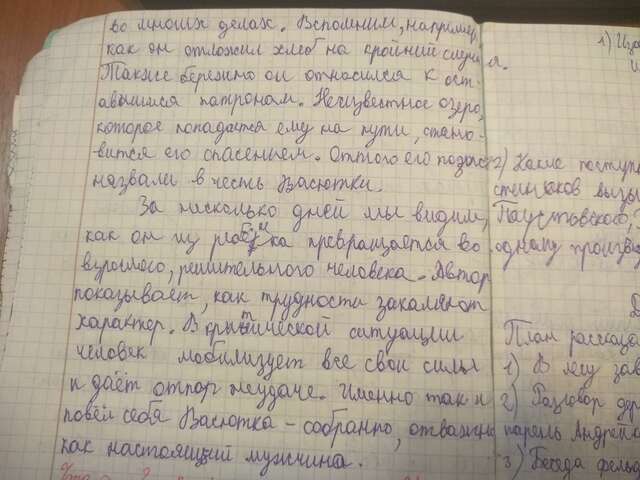 во многих делах. Вспомним, например,
как он отложил хлеб на крайний случай.
Также бережно он относился к ост-
авшимся патронам. Неизвестное озеро,
которое попадается ему на пути, стано-
вится его спасеньем. Оттого его позже
назвали в честь Васютки.
За несколько дней мы видим,
как он из ребёнка превращается во
взрослого, решительного человека. Автор
показывает, как трудности закаляют
характер. В критической ситуации
человек мобилизует все свои силы
и даёт отпор неудаче. Именно так и
повёл себя Васютка - собранно, отважно
как настоящий мужчина.
1)
2) Какие поступк
вызы
Паустовского,
одному произв
План рассказа
1) В лесу зав
2) Разговор
парень Андрей
3) Беседа